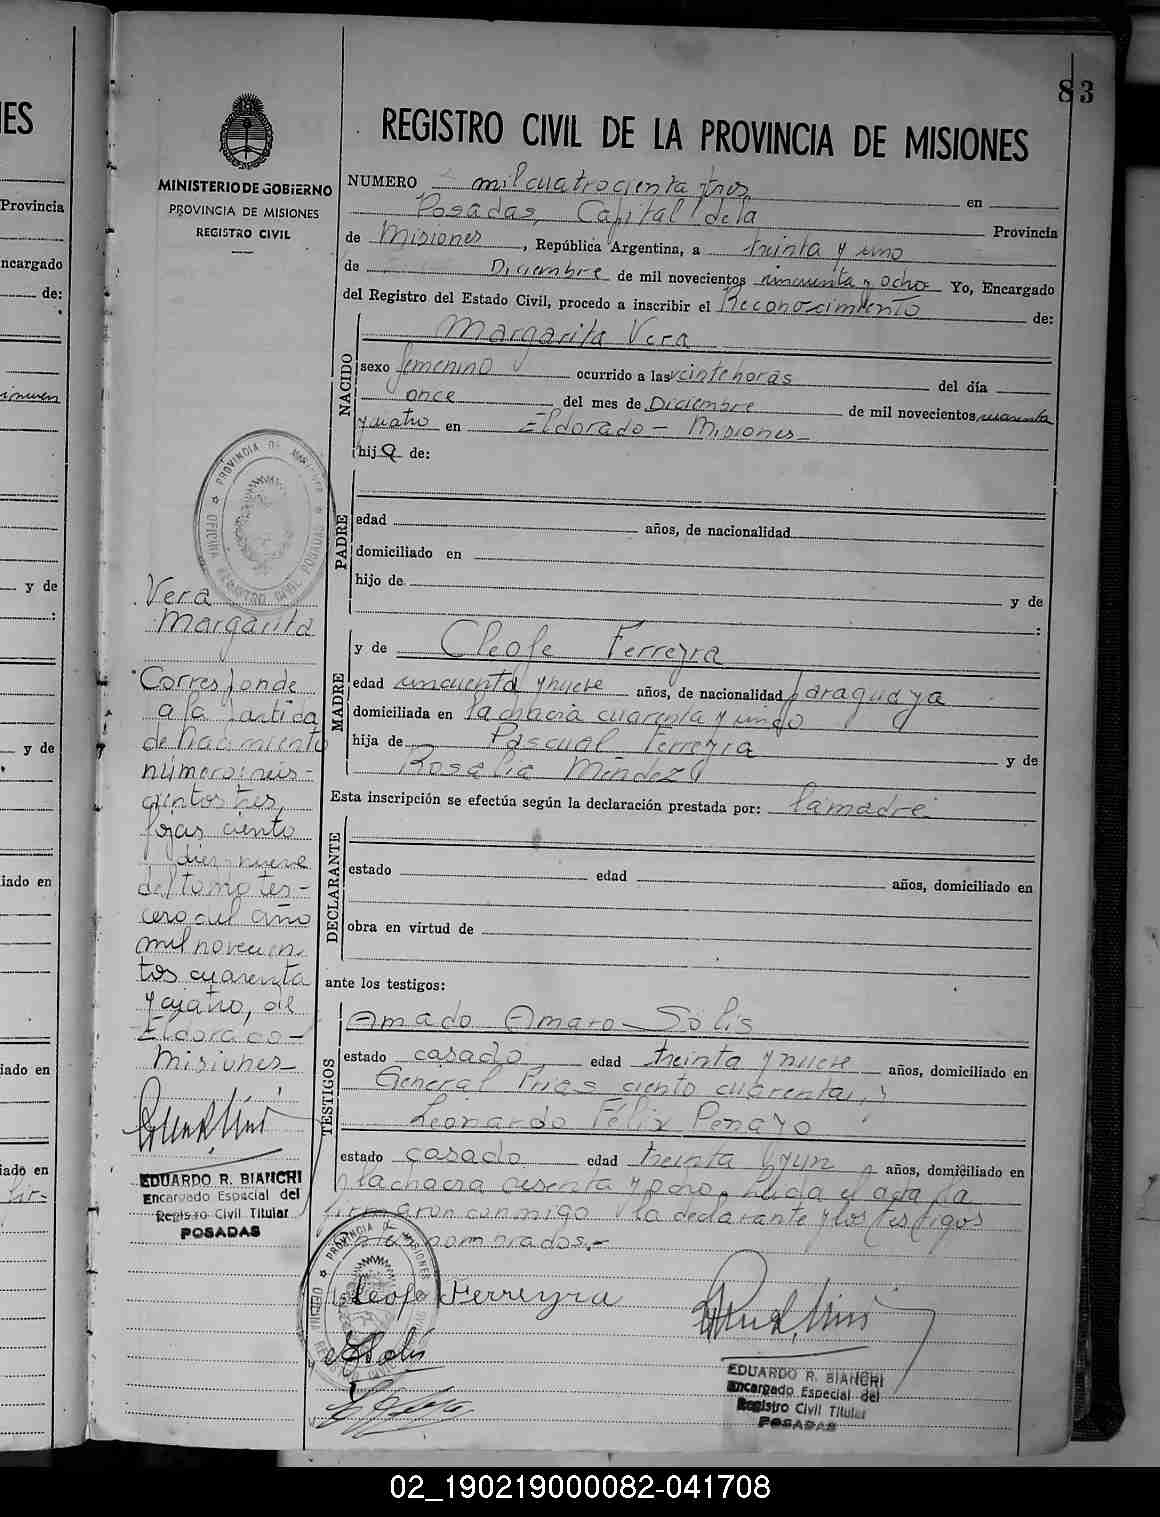 83
REGISTRO CIVIL DE LA PROVINCIA DE MISIONES
MINISTERIO DE GOBIERNO
PROVINCIA DE MISIONES
REGISTRO CIVIL
NUMERO mil cuatrocienta tres en
Posadas, Capital de la Provincia
de Misiones, República Argentina, a treinta y uno
de Diciembre de mil novecientos cincuenta y ocho Yo, Encargado
del Registro del Estado Civil, procedo a inscribir el Reconocimiento de:
NACIDO
Margarita Vera
sexo femenino ocurrido a las veinte horas del día
once del mes de Diciembre de mil novecientos cuarenta
y cuatro en Eldorado - Misiones -
hija de:
PADRE
edad años, de nacionalidad
domiciliado en
hijo de y de
:
MADRE
y de Cleofe Ferreyra
edad cincuenta y nueve años, de nacionalidad paraguaya
domiciliada en la chacra cuarenta y cinco
hija de Pascual Ferreyra y de
Rosalia Mendez
Esta inscripción se efectúa según la declaración prestada por: la madre
DECLARANTE
estado edad años, domiciliado en
obra en virtud de
ante los testigos:
TESTIGOS
Amado Amaro Solis
estado casado edad treinta y nueve años, domiciliado en
General Frias ciento cuarenta,
Leonardo Félix Penayo
estado casado edad treinta y un años, domiciliado en
la chacra sesenta y ocho. Leida el acta la
firmaron conmigo la declarante y los testigos
nombrados.-
Cleofe Ferreyra
Solis
EDUARDO R. BIANCHI
Encargado Especial del
Registro Civil Titular
POSADAS
Vera
Margarita
Corresponde
a la partida
de nacimiento
número: seis-
cientos tres,
fojas ciento
diez nueve
del tomo ter-
cero del año
mil novecien-
tos cuarenta
y cuatro, de
Eldorado -
Misiones -
EDUARDO R. BIANCHI
Encargado Especial del
Registro Civil Titular
POSADAS
PROVINCIA DE MISIONES
OFICINA REGISTRO CIVIL POSADAS
PROVINCIA DE MISIONES
OFICINA
ES
Provincia
ncargado
de:
y de
:
y de
iado en
iado en
iado en
02_190219000082-041708